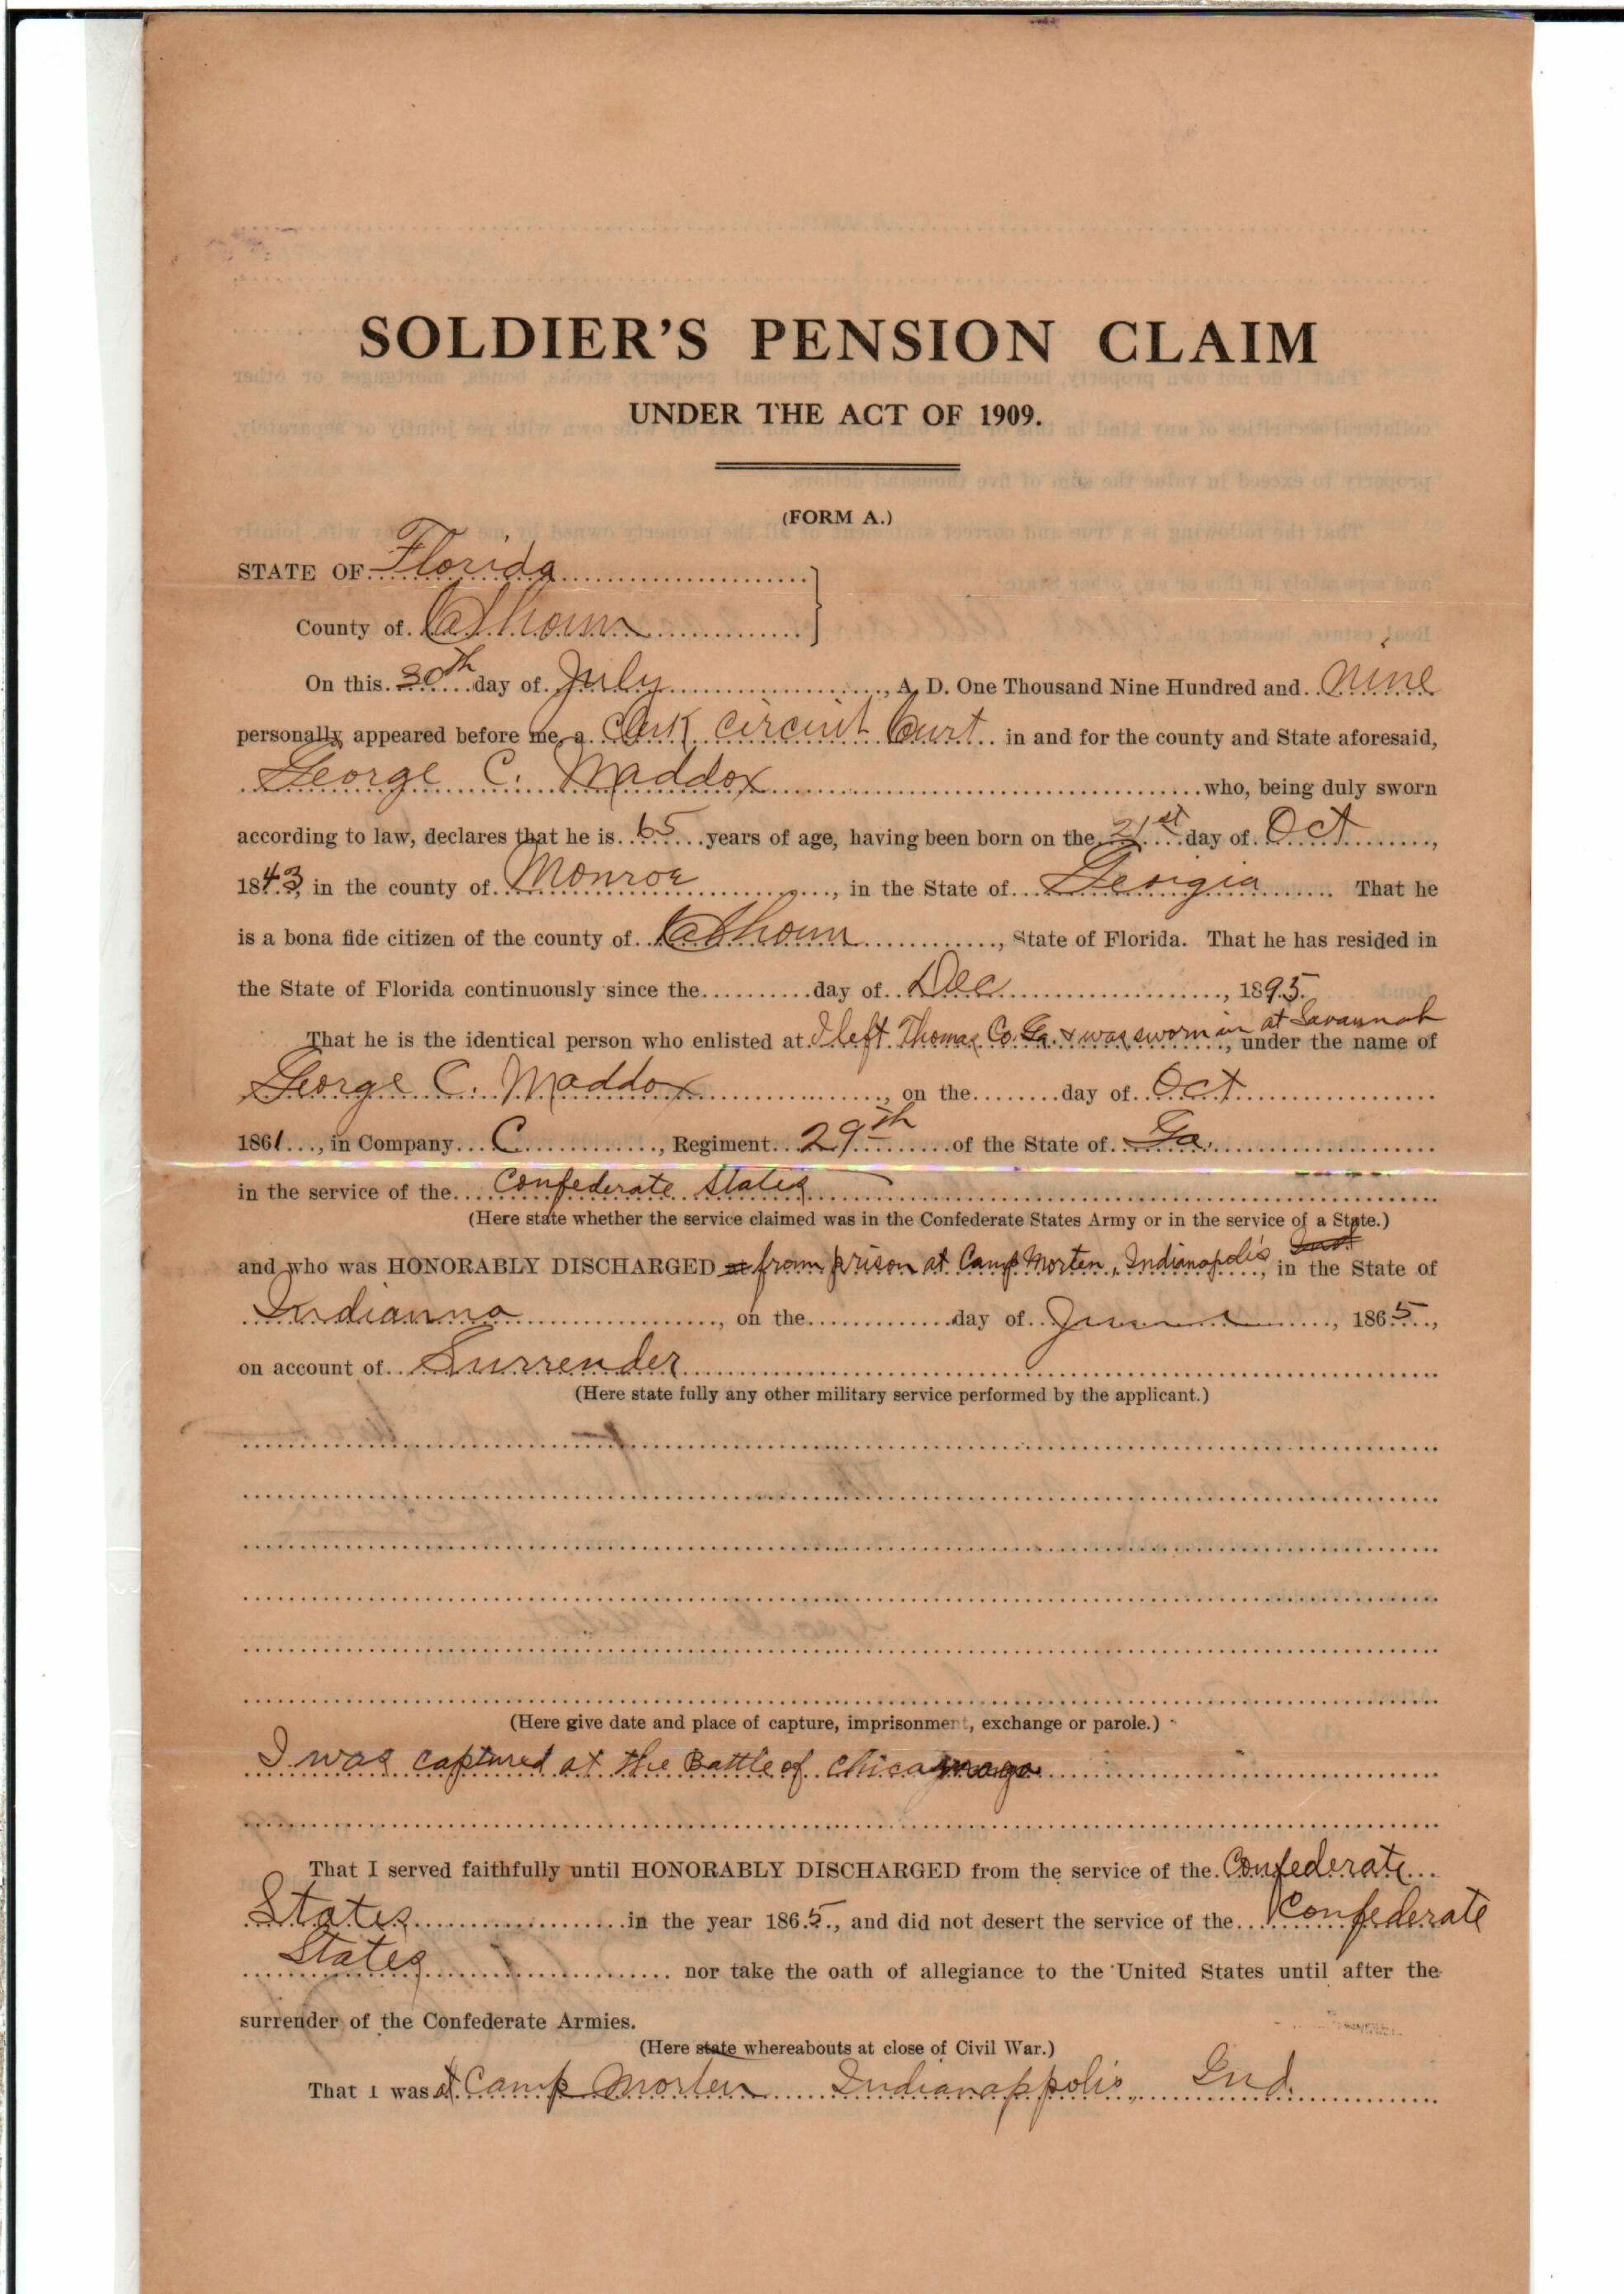 SOLDIER'S PENSION CLAIM
UNDER THE ACT OF 1909.
(FORM A.)
STATE OF Florida
County of Calhoun
On this 30th day of July, A. D. One Thousand Nine Hundred and nine
personally appeared before me, a Clerk Circuit Court in and for the county and State aforesaid,
George C. Maddox who, being duly sworn
according to law, declares that he is 65 years of age, having been born on the 21st day of Oct,
1843, in the county of Monroe, in the State of Georgia. That he
is a bona fide citizen of the county of Calhoun, State of Florida. That he has resided in
the State of Florida continuously since the day of Dec, 1895.
That he is the identical person who enlisted at I left Thomas Co. Ga. & was sworn in at Savannah, under the name of
George C. Maddox, on the day of Oct
1861, in Company C, Regiment 29th of the State of Ga.
in the service of the Confederate States
(Here state whether the service claimed was in the Confederate States Army or in the service of a State.)
and who was HONORABLY DISCHARGED at from prison at Camp Morten, Indianapolis, Ind. in the State of
Indianna, on the day of June, 1865,
on account of Surrender
(Here state fully any other military service performed by the applicant.)
(Here give date and place of capture, imprisonment, exchange or parole.)
I was captured at the Battle of Chicamaga
That I served faithfully until HONORABLY DISCHARGED from the service of the Confederate
States in the year 1865, and did not desert the service of the Confederate
States nor take the oath of allegiance to the United States until after the
surrender of the Confederate Armies.
(Here state whereabouts at close of Civil War.)
That I was at Camp Morten Indianappolis, Ind.